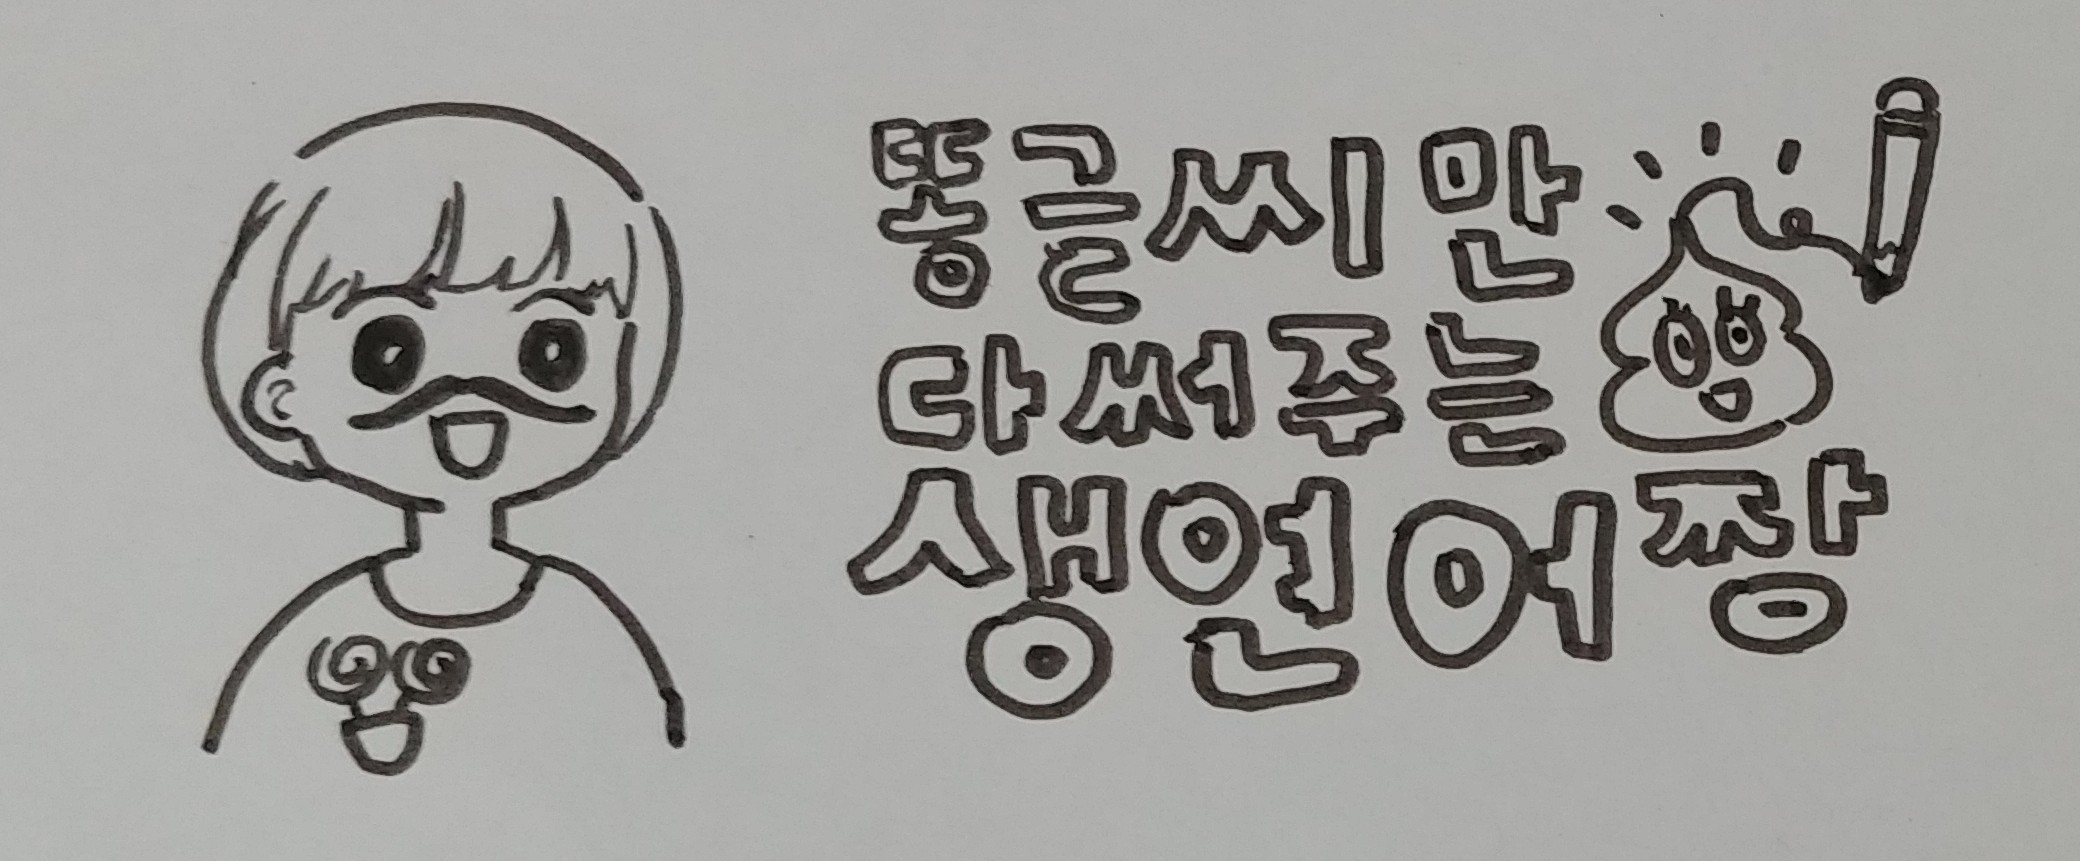 똥글씨만
다써주는
생연어짱